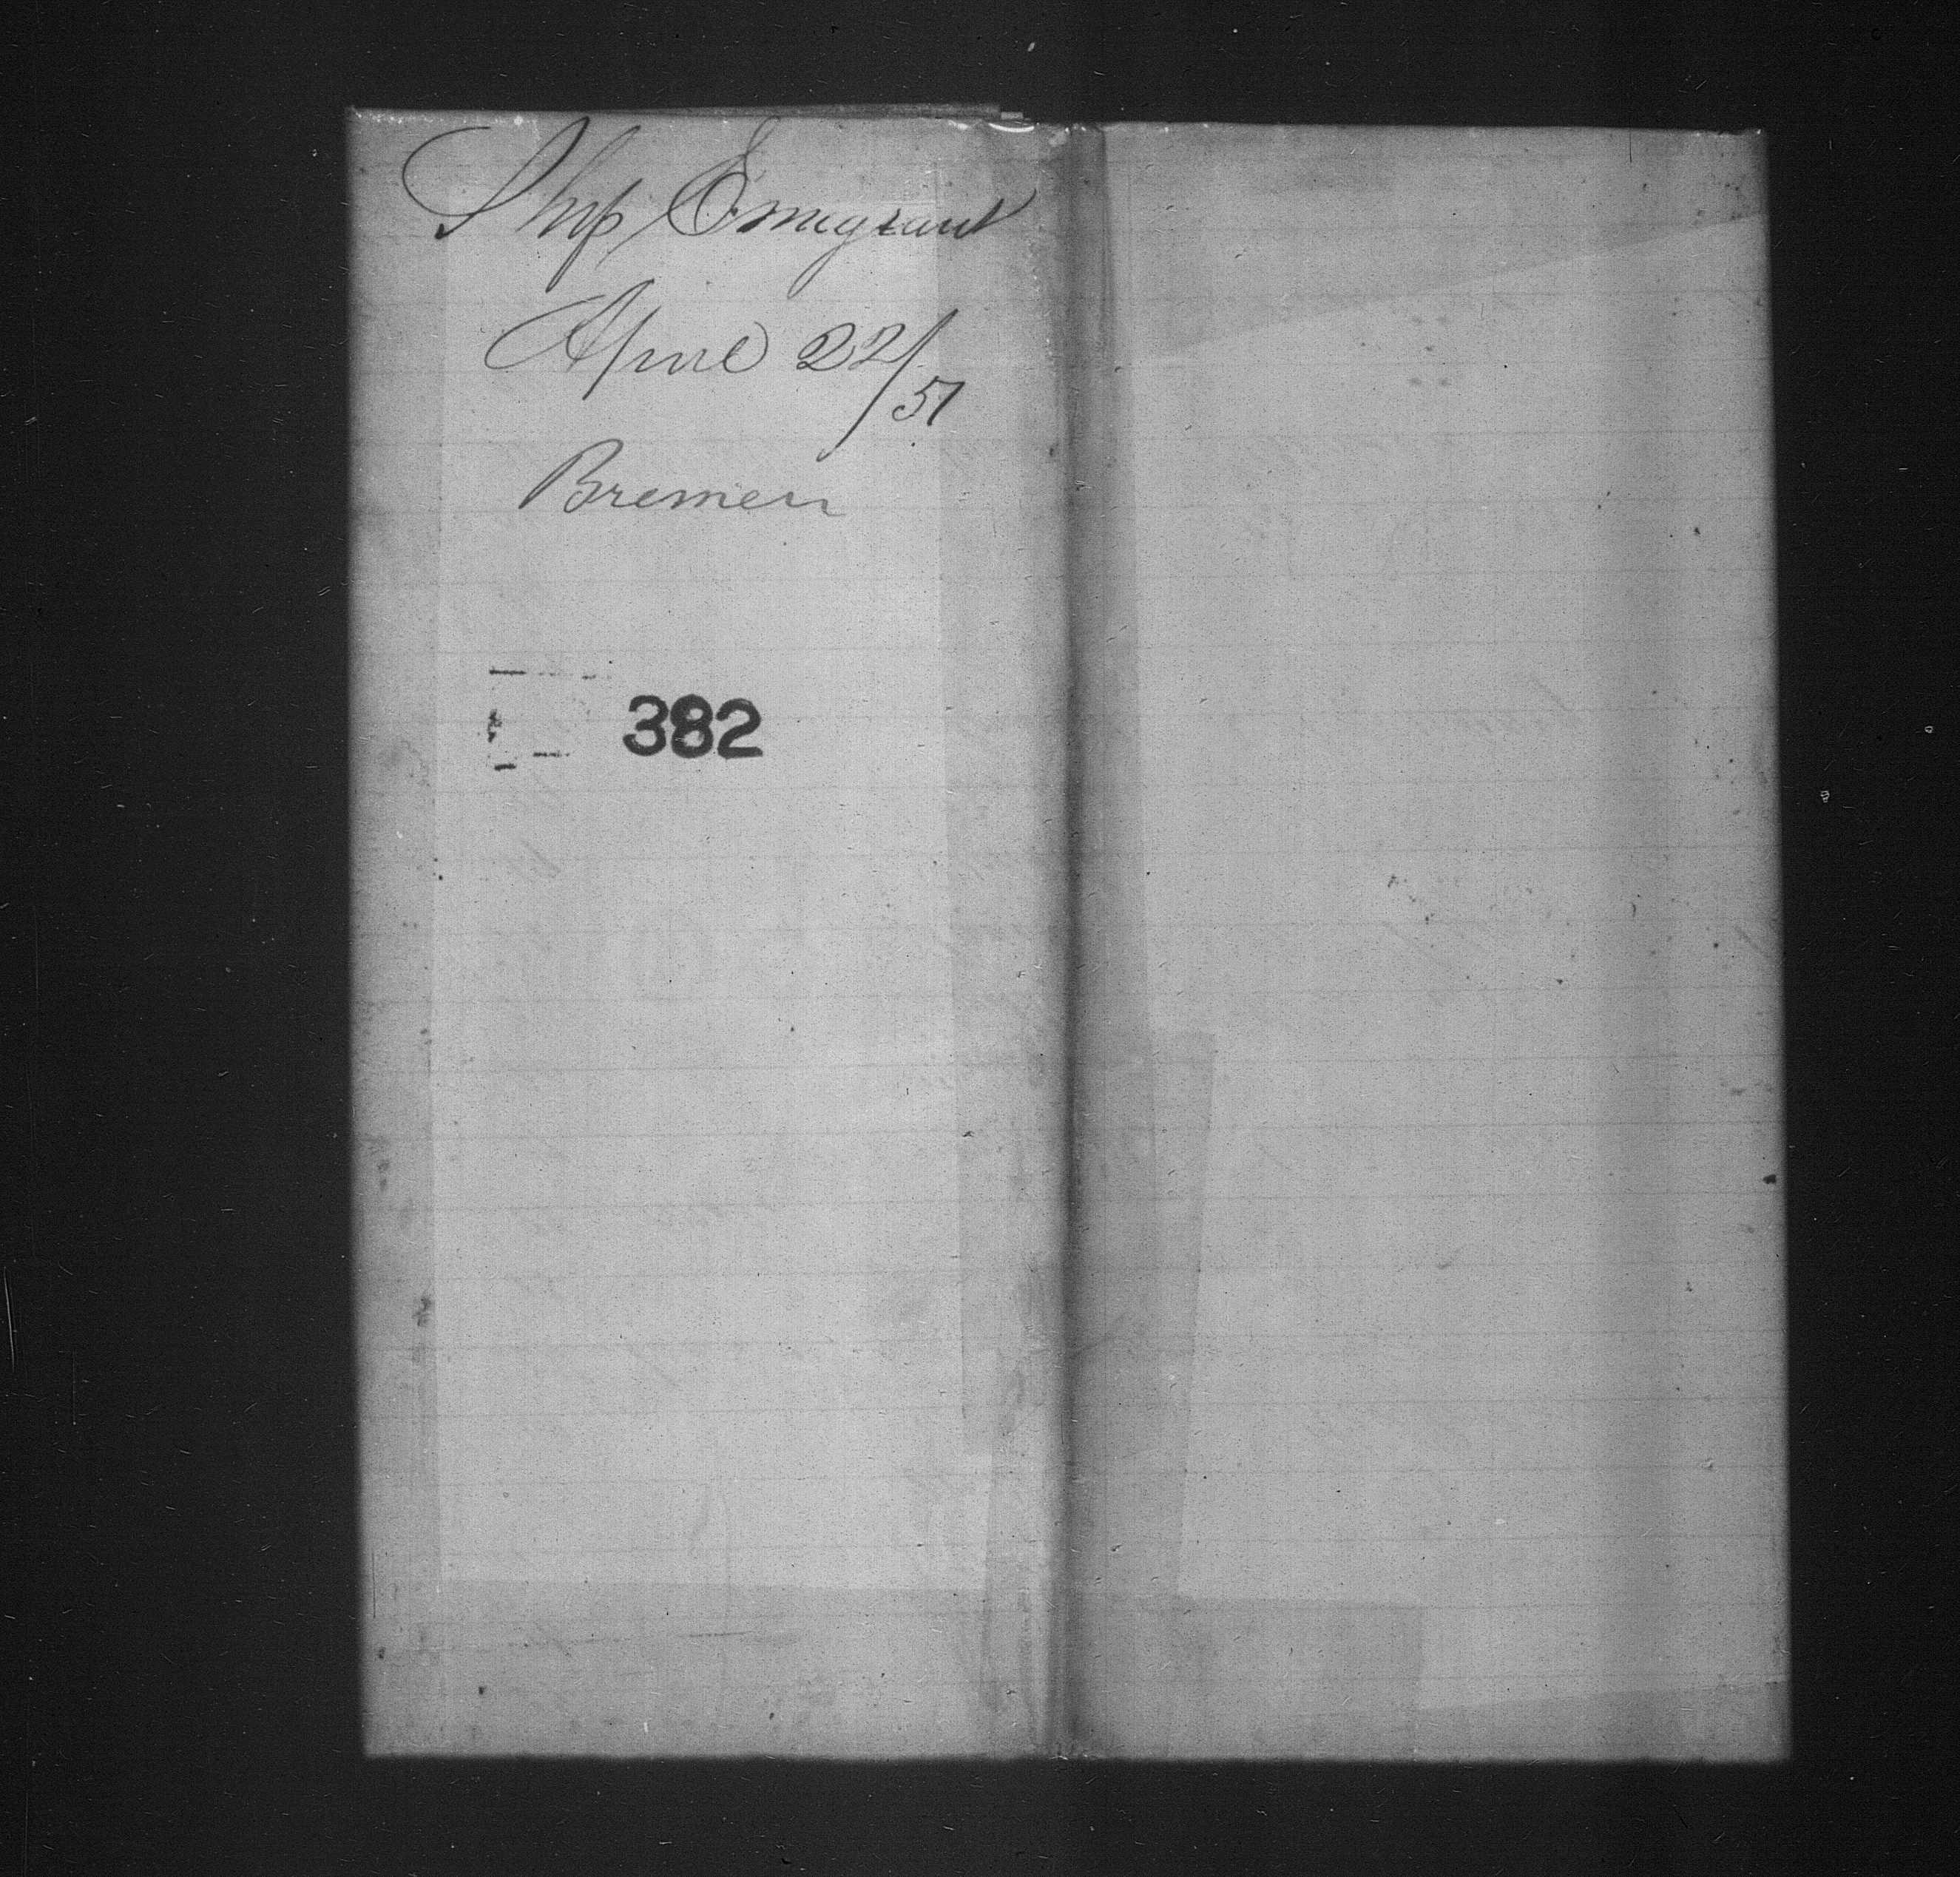 Ship Emigrant
April 22/
51
Bremen
382